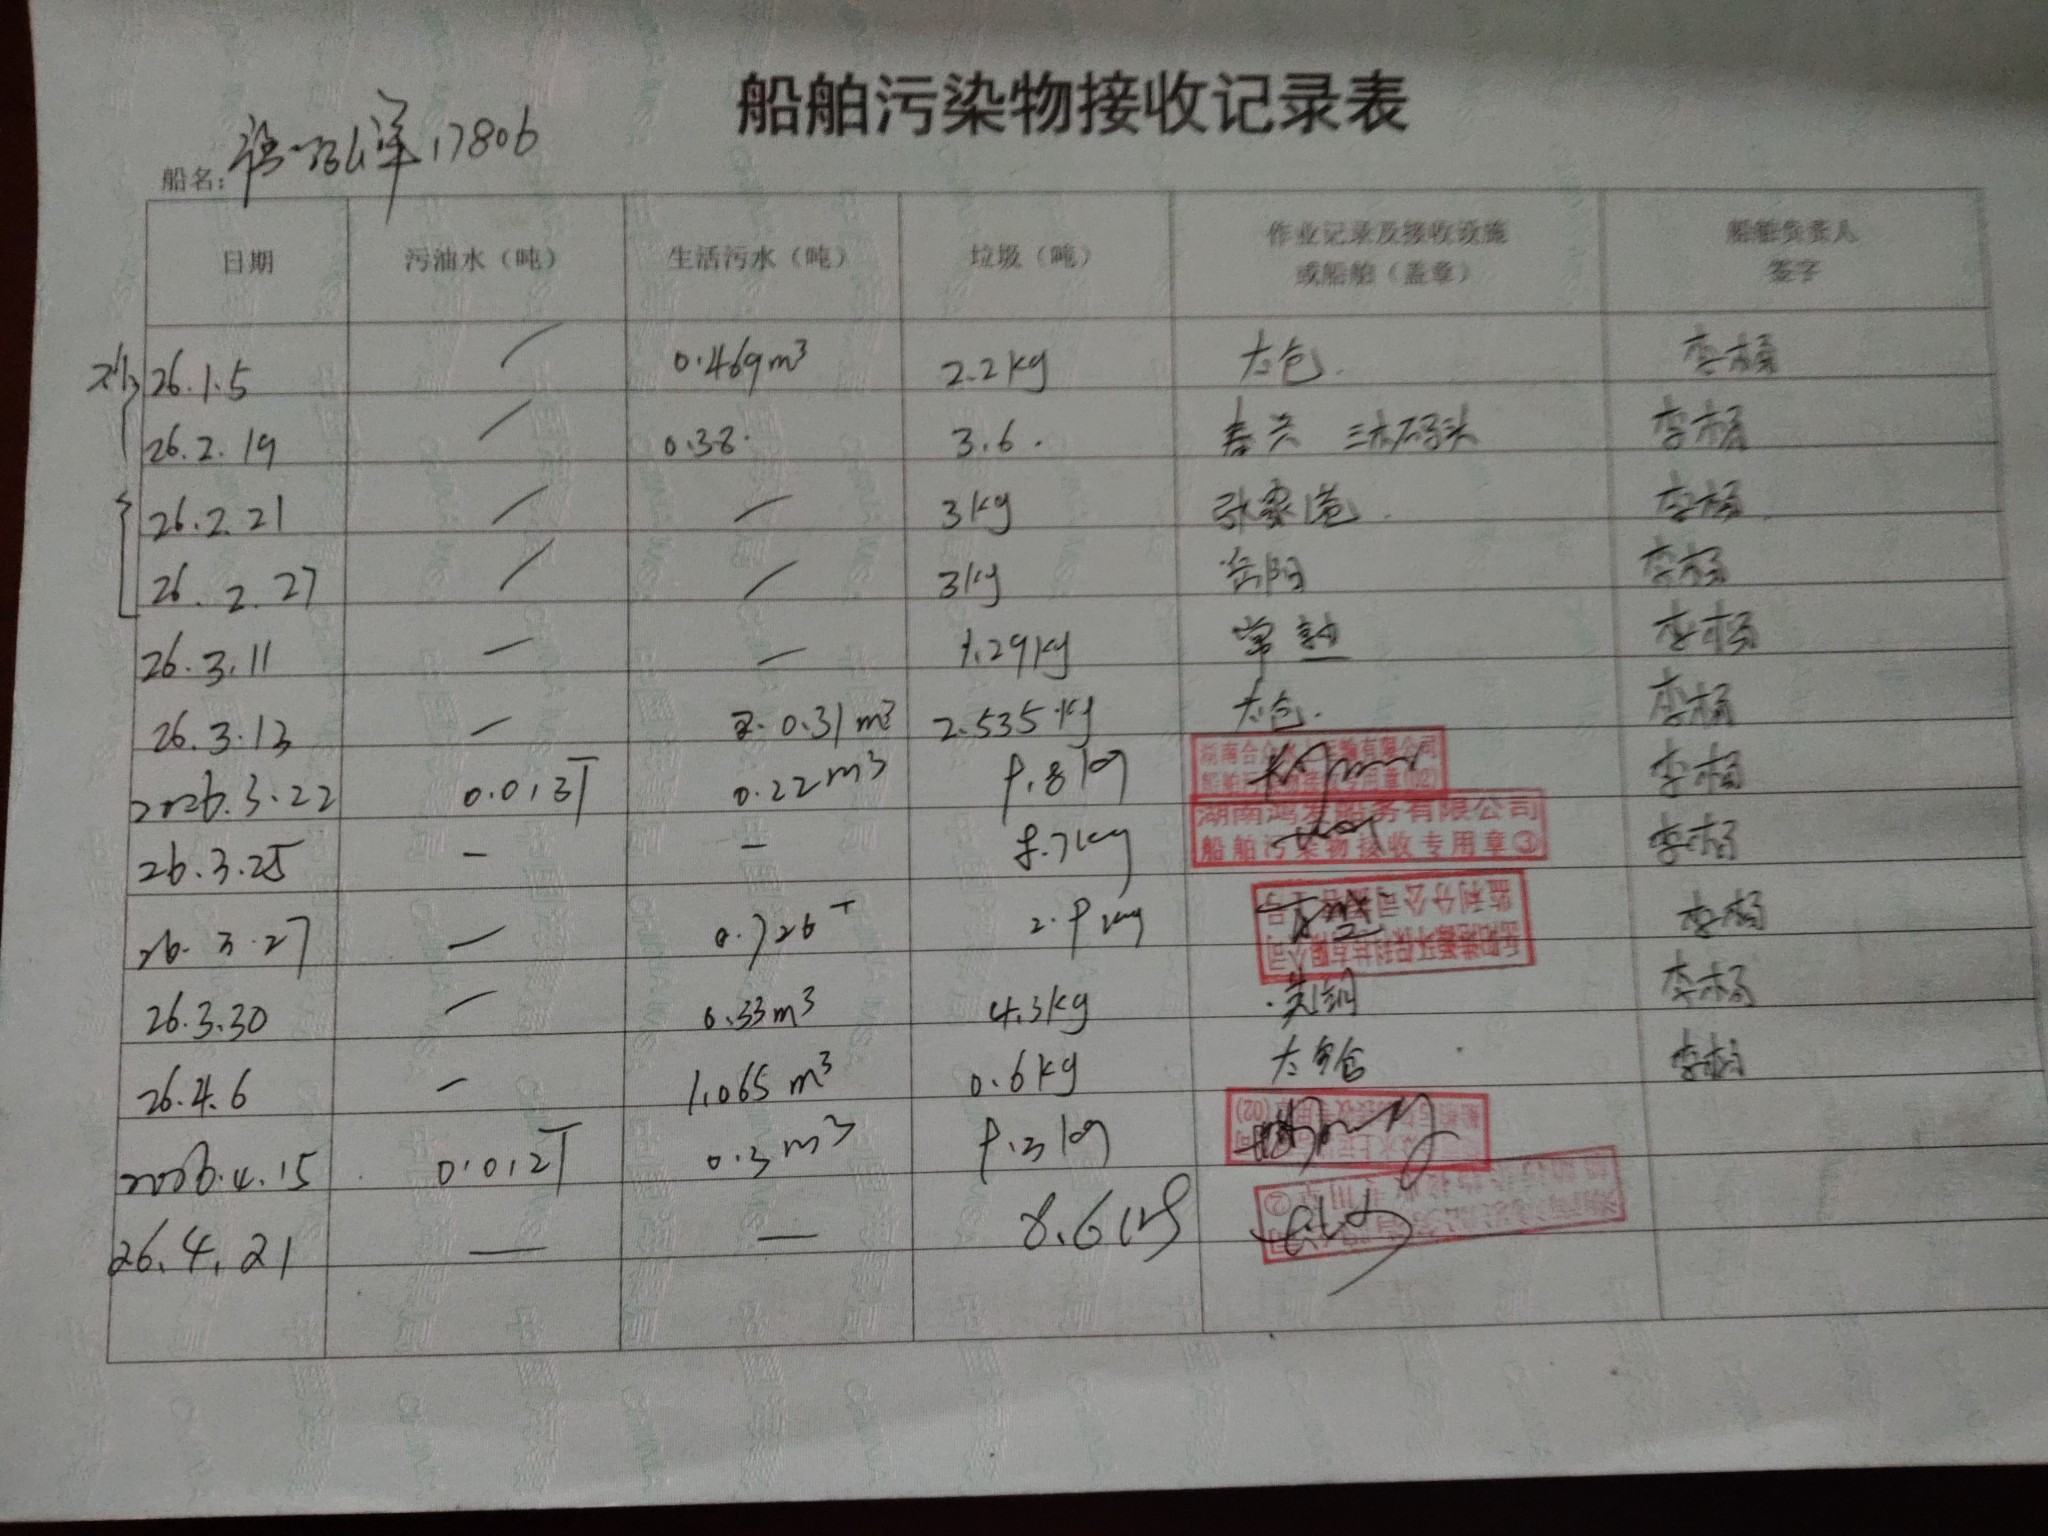 船舶污染物接收记录表
船名: 17806
日期 污油水（吨） 生活污水（吨） 垃圾（吨） 作业记录及接收设施或船舶（盖章） 船舶负责人签字
26.1.5 / 0.469m³ 2.2kg 太仓. 李杨
26.2.19 / 0.38. 3.6. 三林码头 李杨
26.2.21 / / 3kg 张家港. 李杨
26.2.27 / / 3kg 岳阳 李杨
26.3.11 — — 1.29kg 常熟 李杨
26.3.13 — 0.31m³ 2.535kg 太仓. 李杨
2026.3.22 0.013T 0.22m³ 李杨
26.3.25 — — 湖南鸿发船务有限公司 船舶污染物接收专用章③ 李杨
26.3.27 — 0.726T 监利分公司 李杨
26.3.30 — 0.33m³ 4.3kg 李杨
26.4.6 — 1.065m³ 0.6kg 太仓 李杨
2026.4.15 0.012T 0.3m³
26.4.21 — — 8.6kg